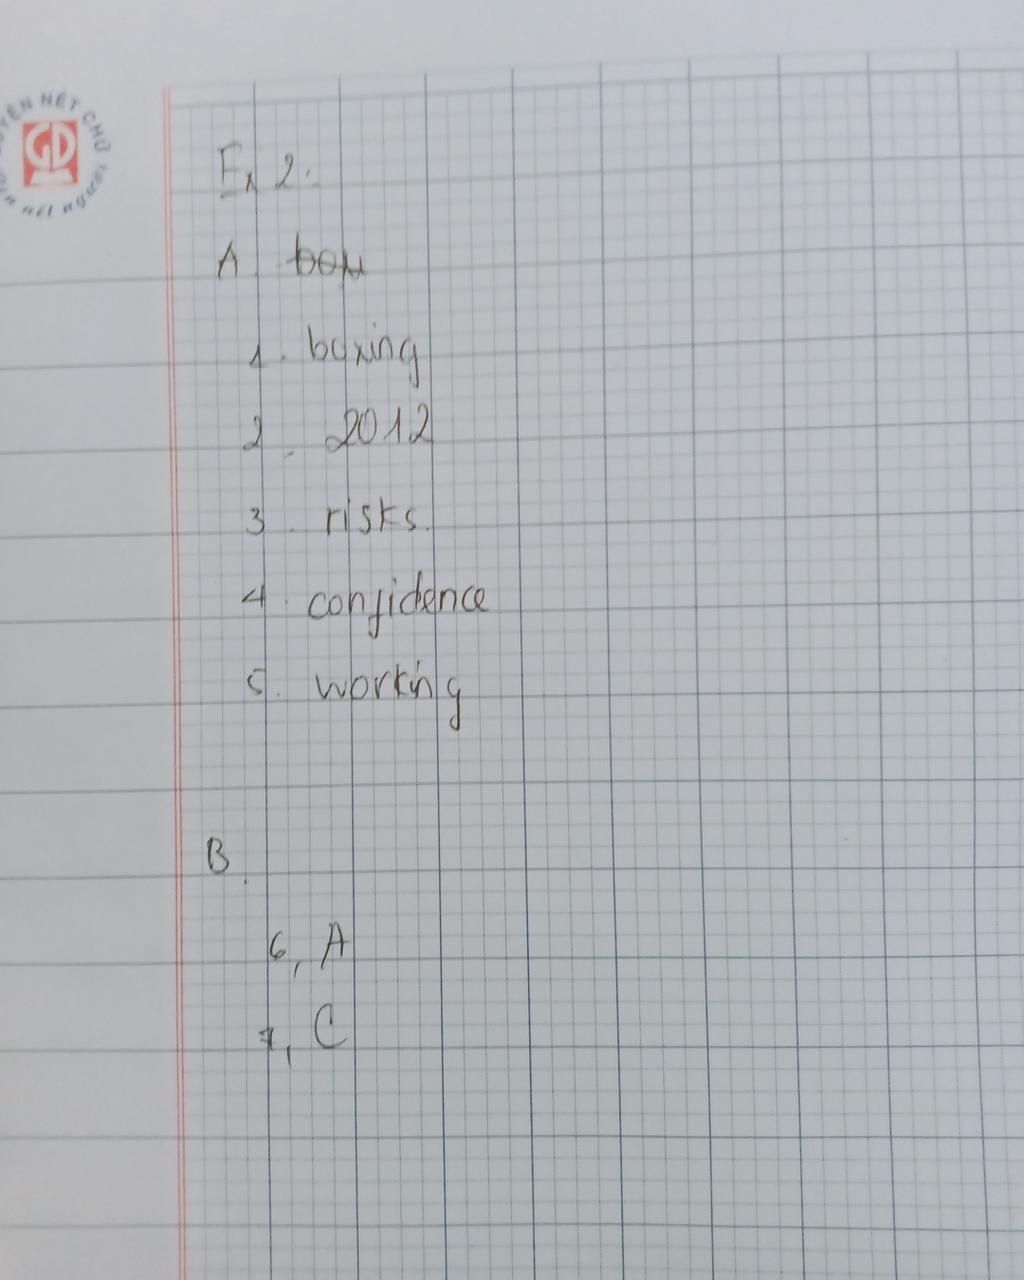 LUYỆN NÉT CHỮ
GD
rèn nết người
Ex 2.
A.
1. boxing
2. 2012
3. risks.
4. confidence
5. working
B.
6, A
7, C